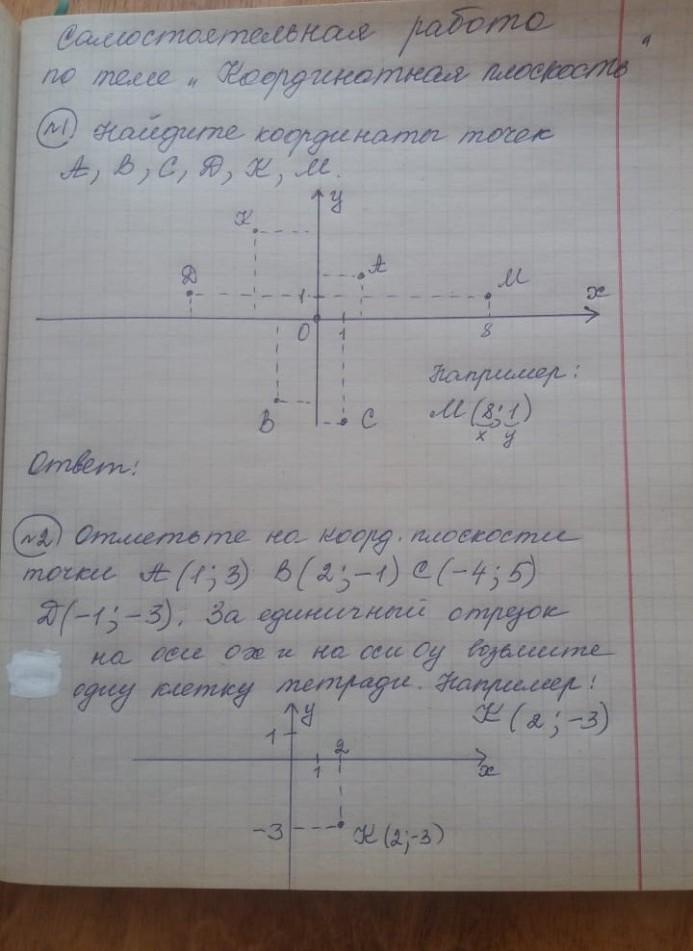 Самостоятельная работа
по теме „Координатная плоскость"
№1 Найдите координаты точек
А, В, С, Д, К, М.
у
К
А
Д
М
1
х
0
1
8
Например:
В
С
М(8; 1)
х у
Ответ:
№2 Отметьте на коорд. плоскости
точки А(1; 3) В(2; -1) С(-4; 5)
Д(-1; -3). За единичный отрезок
на оси ох и на оси оу возьмите
одну клетку тетради. Например:
К(2; -3)
у
1
2
1
х
-3
К(2;-3)